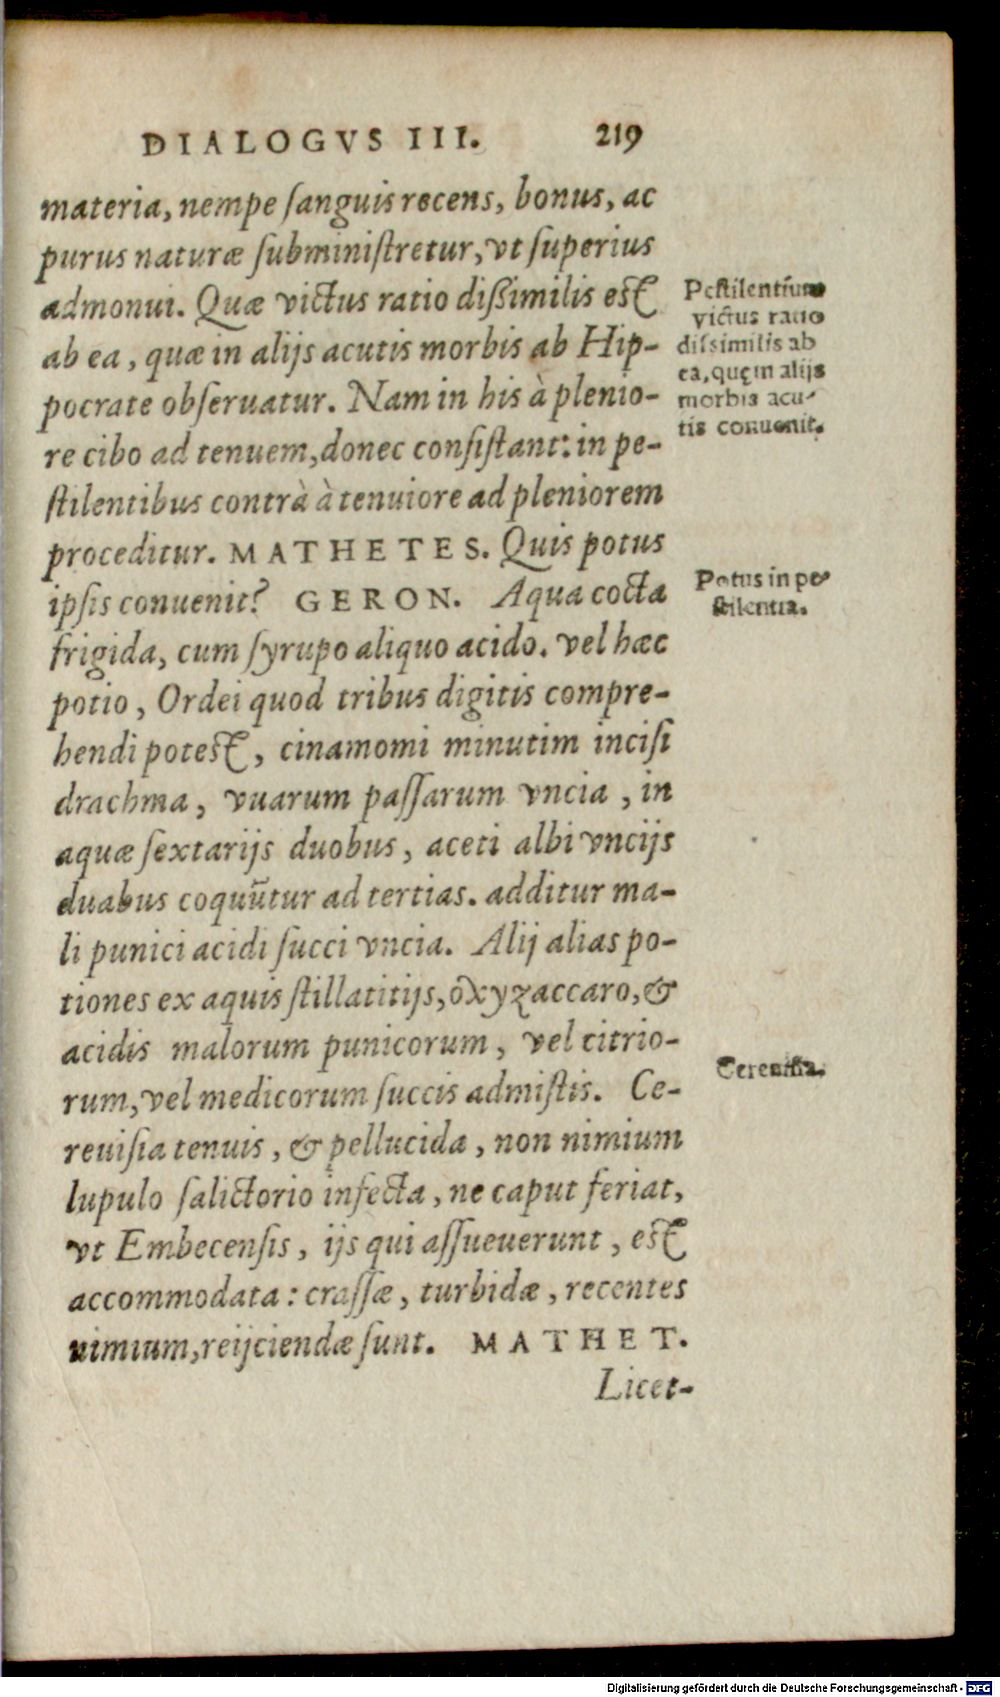 DIALOGVS III. 219
materia, nempe ſanguis recens, bonus, ac
purus naturæ ſubminiſtretur, vt ſuperius
admonui. Quæ victus ratio diſſimilis eſt
ab ea, quæ in alijs acutis morbis ab Hip-
pocrate obſeruatur. Nam in his à plenio-
re cibo ad tenuem, donec conſiſtant: in pe-
ſtilentibus contrà à tenuiore ad pleniorem
proceditur. MATHETES. Quis potus
ipſis conuenit? GERON. Aqua cocta
frigida, cum ſyrupo aliquo acido. vel hæc
potio, Ordei quod tribus digitis compre-
hendi poteſt, cinamomi minutim inciſi
drachma, vuarum paſſarum vncia, in
aquæ ſextarijs duobus, aceti albi vncijs
duabus coquũtur ad tertias. additur ma-
li punici acidi ſucci vncia. Alij alias po-
tiones ex aquis ſtillatitijs, ὀxyzaccaro, &
acidis malorum punicorum, vel citrio-
rum, vel medicorum ſuccis admiſtis. Ce-
reuiſia tenuis, & pellucida, non nimium
lupulo ſalictorio infecta, ne caput feriat,
vt Embecenſis, ijs qui aſſueuerunt, eſt
accommodata: craſſæ, turbidæ, recentes
nimium, reijciendæ ſunt. MATHET.
Licet-
Peſtilentium
victus ratio
diſsimilis ab
ea, quę in alijs
morbis acu-
tis conuenit.
Potus in pe-
ſtilentia.
Cereuiſia.
Digitalisierung gefördert durch die Deutsche Forschungsgemeinschaft - DFG